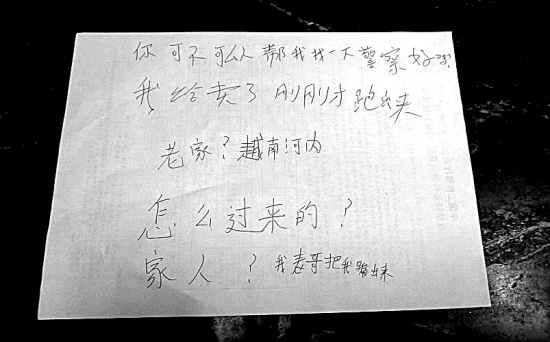 你可不可以帮我找一下警察好吗?
我给卖了刚刚才跑出来
老家?越南河内
怎么过来的?
家人?我表哥把我骗出来